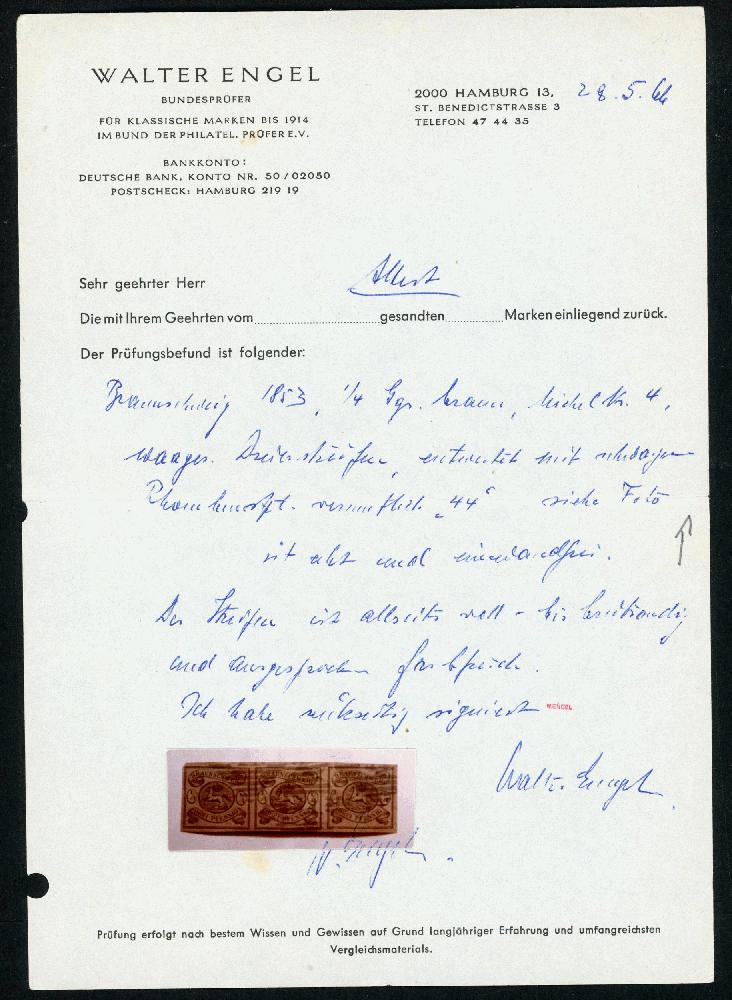 WALTER ENGEL
BUNDESPRÜFER
FÜR KLASSISCHE MARKEN BIS 1914
IM BUND DER PHILATEL. PRÜFER E.V.
BANKKONTO:
DEUTSCHE BANK, KONTO NR. 50/02050
POSTSCHECK: HAMBURG 219 19
2000 HAMBURG 13, 28.5.66
ST. BENEDICTSTRASSE 3
TELEFON 47 44 35
Sehr geehrter Herr
Die mit Ihrem Geehrten vom gesandten Marken einliegend zurück.
Der Prüfungsbefund ist folgender:
Braunschweig 1853, 1/4 Sgr. braun, Michel Nr. 4,
waager. Dreierstreifen, entwertet mit schwarzem
vermutlich "44" siehe Foto
ist echt und einwandfrei.
Der Streifen ist allseits voll- bis breitrandig
und ausgesprochen farbfrisch.
Ich habe rückseitig signiert W.ENGEL
Walter Engel
W. Engel.
Prüfung erfolgt nach bestem Wissen und Gewissen auf Grund langjähriger Erfahrung und umfangreichsten
Vergleichsmaterials.